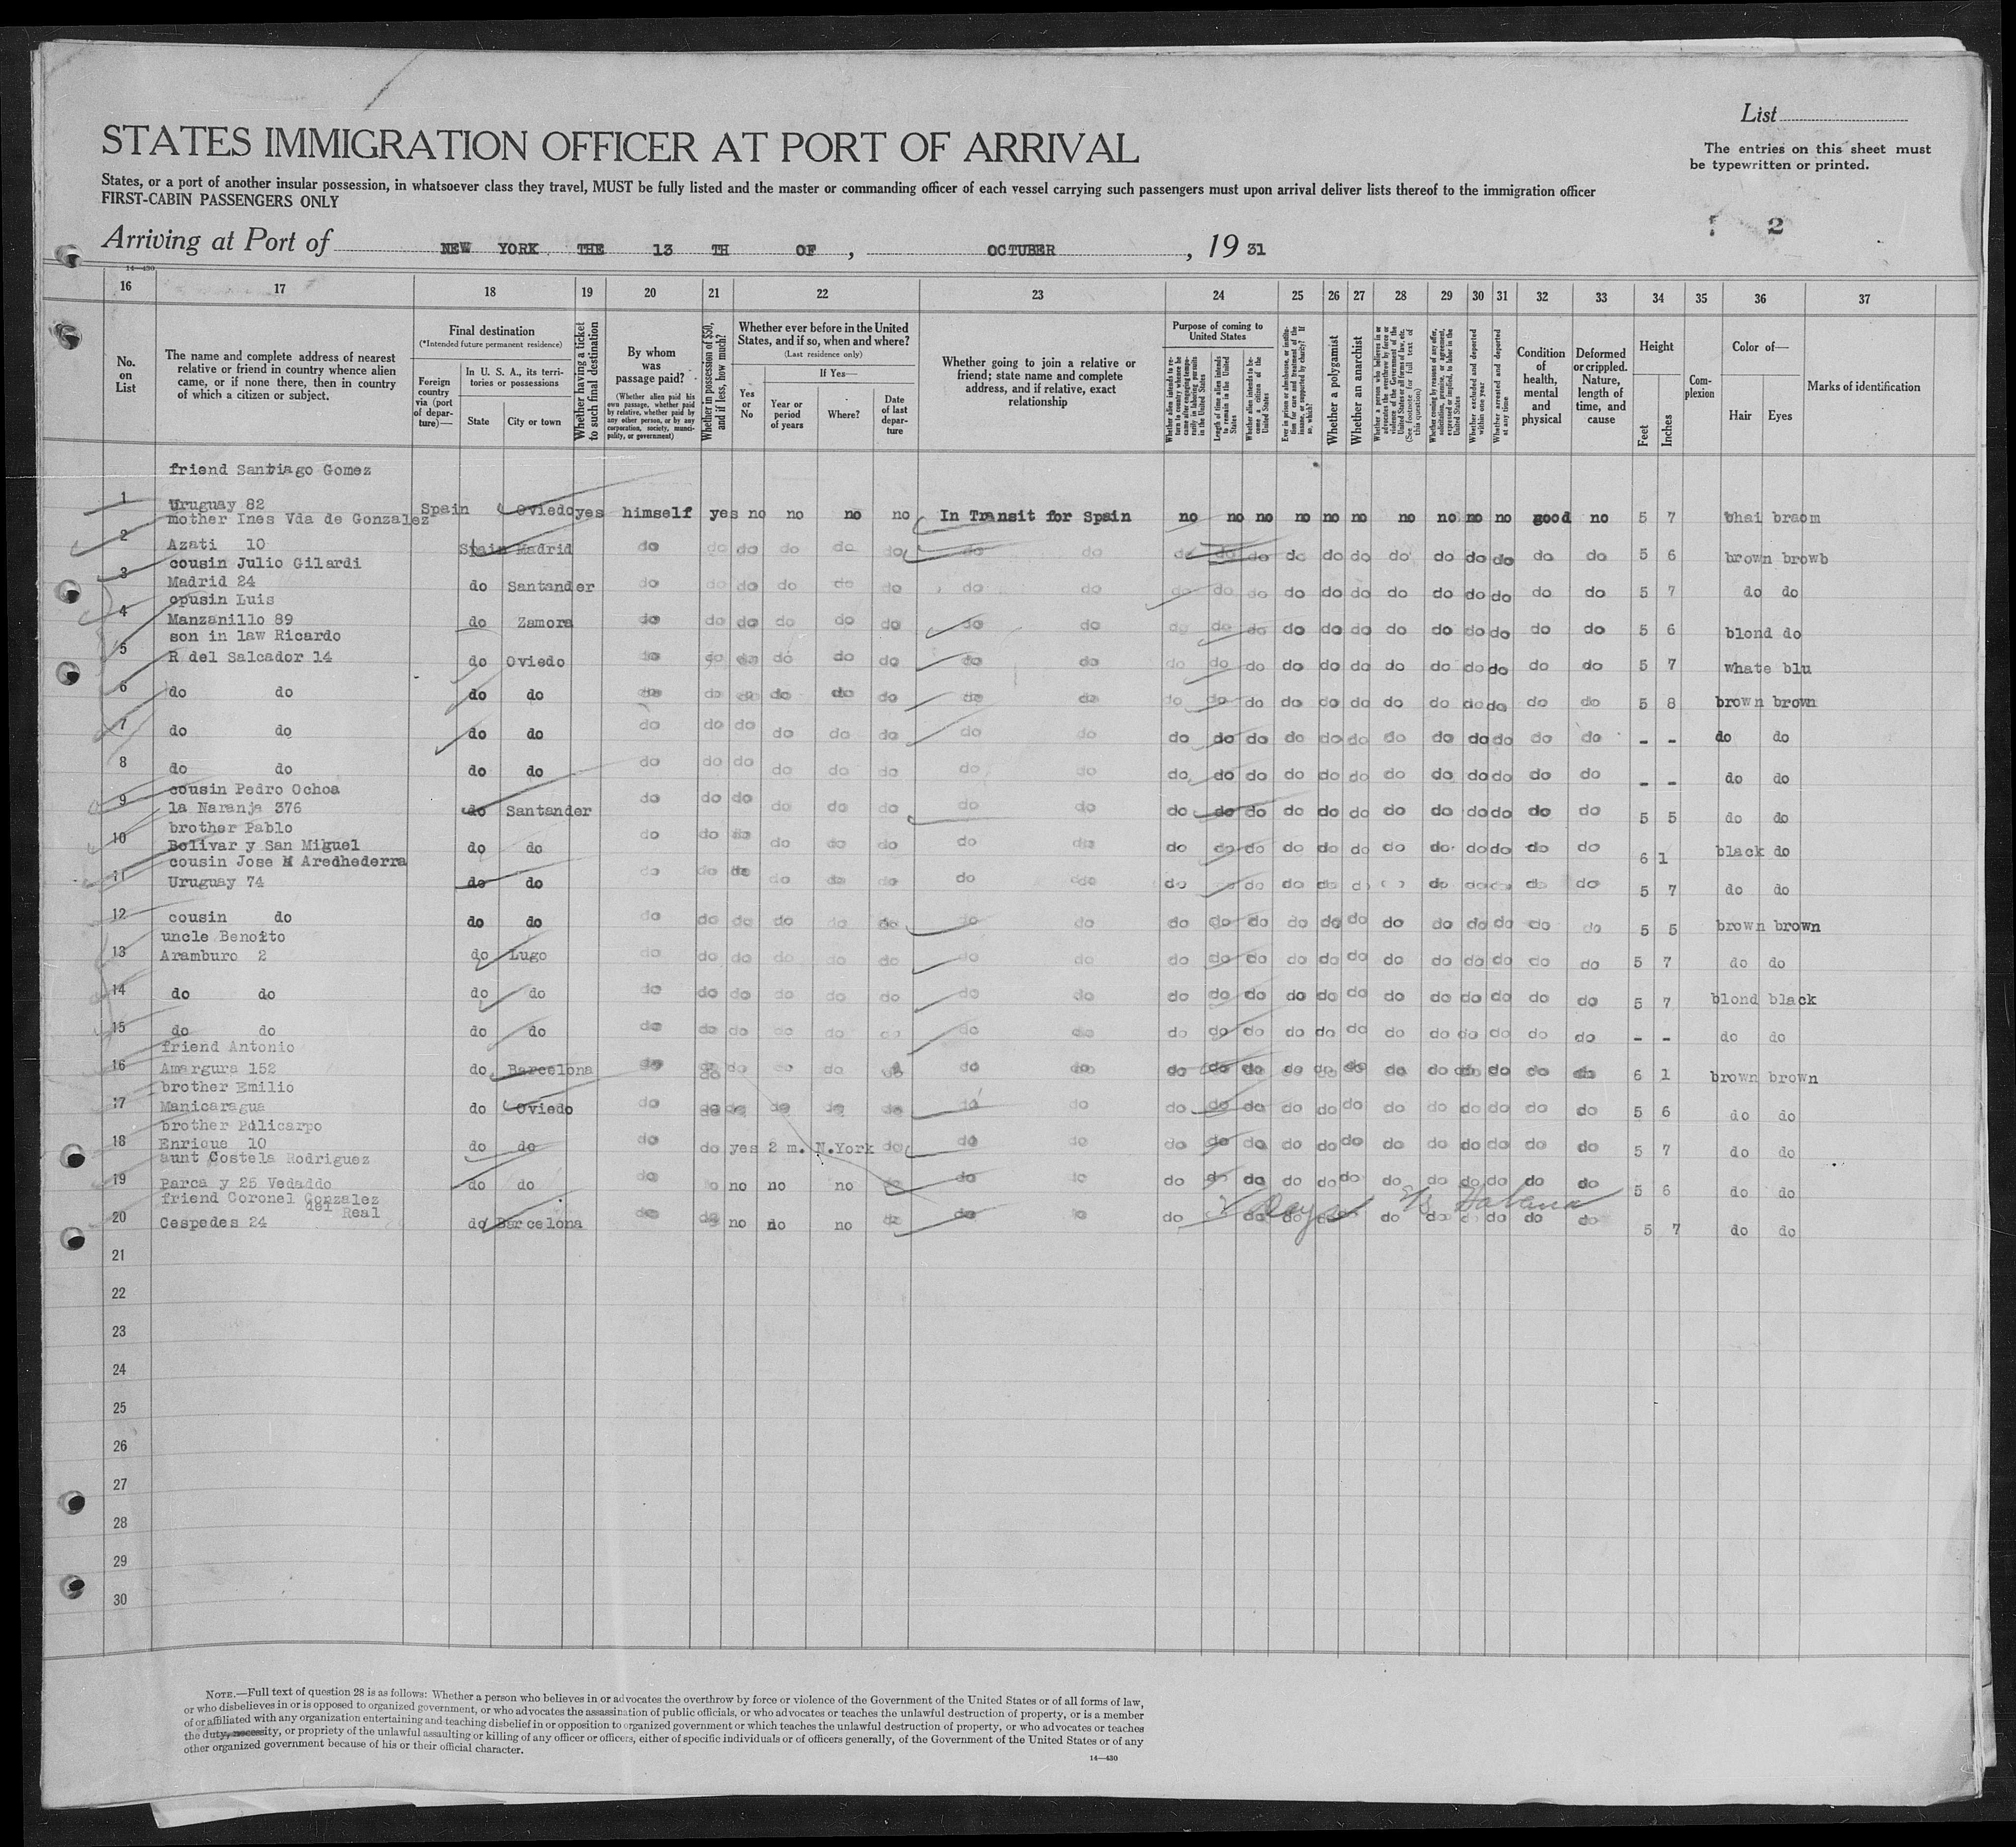 List
STATES IMMIGRATION OFFICER AT PORT OF ARRIVAL
The entries on this sheet must
be typewritten or printed.
States, or a port of another insular possession, in whatsoever class they travel, MUST be fully listed and the master or commanding officer of each vessel carrying such passengers must upon arrival deliver lists thereof to the immigration officer
FIRST-CABIN PASSENGERS ONLY
2
Arriving at Port of NEW YORK THE 13 TH OF , OCTUBER , 19 31
14—430
16 17 18 19 20 21 22 23 24 25 26 27 28 29 30 31 32 33 34 35 36 37
No. on List
The name and complete address of nearest relative or friend in country whence alien came, or if none there, then in country of which a citizen or subject.
Final destination
(*Intended future permanent residence)
Foreign country via (port of departure)—
In U. S. A., its territories or possessions
State
City or town
Whether having a ticket to such final destination
By whom was passage paid?
(Whether alien paid his own passage, whether paid by relative, whether paid by any other person, or by any corporation, society, municipality, or government)
Whether in possession of $50, and if less, how much?
Whether ever before in the United States, and if so, when and where?
(Last residence only)
Yes or No
If Yes—
Year or period of years
Where?
Date of last departure
Whether going to join a relative or friend; state name and complete address, and if relative, exact relationship
Purpose of coming to United States
Whether alien intends to return to country whence he came after engaging temporarily in laboring pursuits in the United States
Length of time alien intends to remain in the United States
Whether alien intends to become a citizen of the United States
Ever in prison or almshouse, or institution for care and treatment of the insane, or supported by charity? If so, which?
Whether a polygamist
Whether an anarchist
Whether a person who believes in or advocates the overthrow by force or violence of the Government of the United States or all forms of law, etc. (See footnote for full text of this question)
Whether coming by reasons of any offer, solicitation, promise, or agreement, expressed or implied, to labor in the United States
Whether excluded and deported within one year
Whether arrested and deported at any time
Condition of health, mental and physical
Deformed or crippled. Nature, length of time, and cause
Height
Feet
Inches
Complexion
Color of—
Hair
Eyes
Marks of identification
friend Santiago Gomez
1 Uruguay 82 Spain Oviedo yes himself yes no no no no In Transit for Spain no no no no no no no no no no good no 5 7 bhai braom
mother Ines Vda de Gonzalez
2 Azati 10 Spain Madrid do do do do do do do do do do do do do do do do do do do do 5 6 brown browb
cousin Julio Gilardi
3 Madrid 24 do Santander do do do do do do do do do do do do do do do do do do do do 5 7 do do
cpusin Luis
4 Manzanillo 89 do Zamora do do do do do do do do do do do do do do do do do do do do 5 6 blond do
son in law Ricardo
5 R del Salcador 14 do Oviedo do do do do do do do do do do do do do do do do do do do do 5 7 whate blu
6 do do do do do do do do do do do do do do do do do do do do do do do do 5 8 brown brown
7 do do do do do do do do do do do do do do do do do do do do do do do do - - do do
8 do do do do do do do do do do do do do do do do do do do do do do do do - - do do
cousin Pedro Ochoa
9 la Naranja 376 do Santander do do do do do do do do do do do do do do do do do do do do 5 5 do do
brother Pablo
10 Bolivar y San Miguel do do do do do do do do do do do do do do do do do do do do do do 6 1 black do
cousin Jose M Aredhederra
11 Uruguay 74 do do do do do do do do do do do do do do do do do do do do 5 7 do do
12 cousin do do do do do do do do do do do do do do do do do do do do do do do do 5 5 brown brown
uncle Benoito
13 Aramburo 2 do Lugo do do do do do do do do do do do do do do do do do do do do 5 7 do do
14 do do do do do do do do do do do do do do do do do do do do do do do do 5 7 blond black
15 do do do do do do do do do do do do do do do do do do do do do do do do - - do do
friend Antonio
16 Amargura 152 do Barcelona do do do do do do do do do do do do do do do do do do do 6 1 brown brown
brother Emilio
17 Manicaragua do Oviedo do do do do do do do do do do do do do do do do do do do do 5 6 do do
brother Pdlicarpo
18 Enrique 10 do do do do yes 2 m. N.York do do do do do do do do do do do do do do do do 5 7 do do
aunt Costela Rodriguez
19 Parca y 25 Vedaddo do do do no no no do do do do do do do do do do do do do do 5 6 do do
friend Coronel Gonzalez
del Real
20 Cespedes 24 do Barcelona do do no no no do do do do do do do do do do do do do 5 7 do do
Days Habana
21
22
23
24
25
26
27
28
29
30
NOTE.—Full text of question 28 is as follows: Whether a person who believes in or advocates the overthrow by force or violence of the Government of the United States or of all forms of law,
or who disbelieves in or is opposed to organized government, or who advocates the assassination of public officials, or who advocates or teaches the unlawful destruction of property, or is a member
of or affiliated with any organization entertaining and teaching disbelief in or opposition to organized government or which teaches the unlawful destruction of property, or who advocates or teaches
the duty, necessity, or propriety of the unlawful assaulting or killing of any officer or officers, either of specific individuals or of officers generally, of the Government of the United States or of any
other organized government because of his or their official character.
14—430